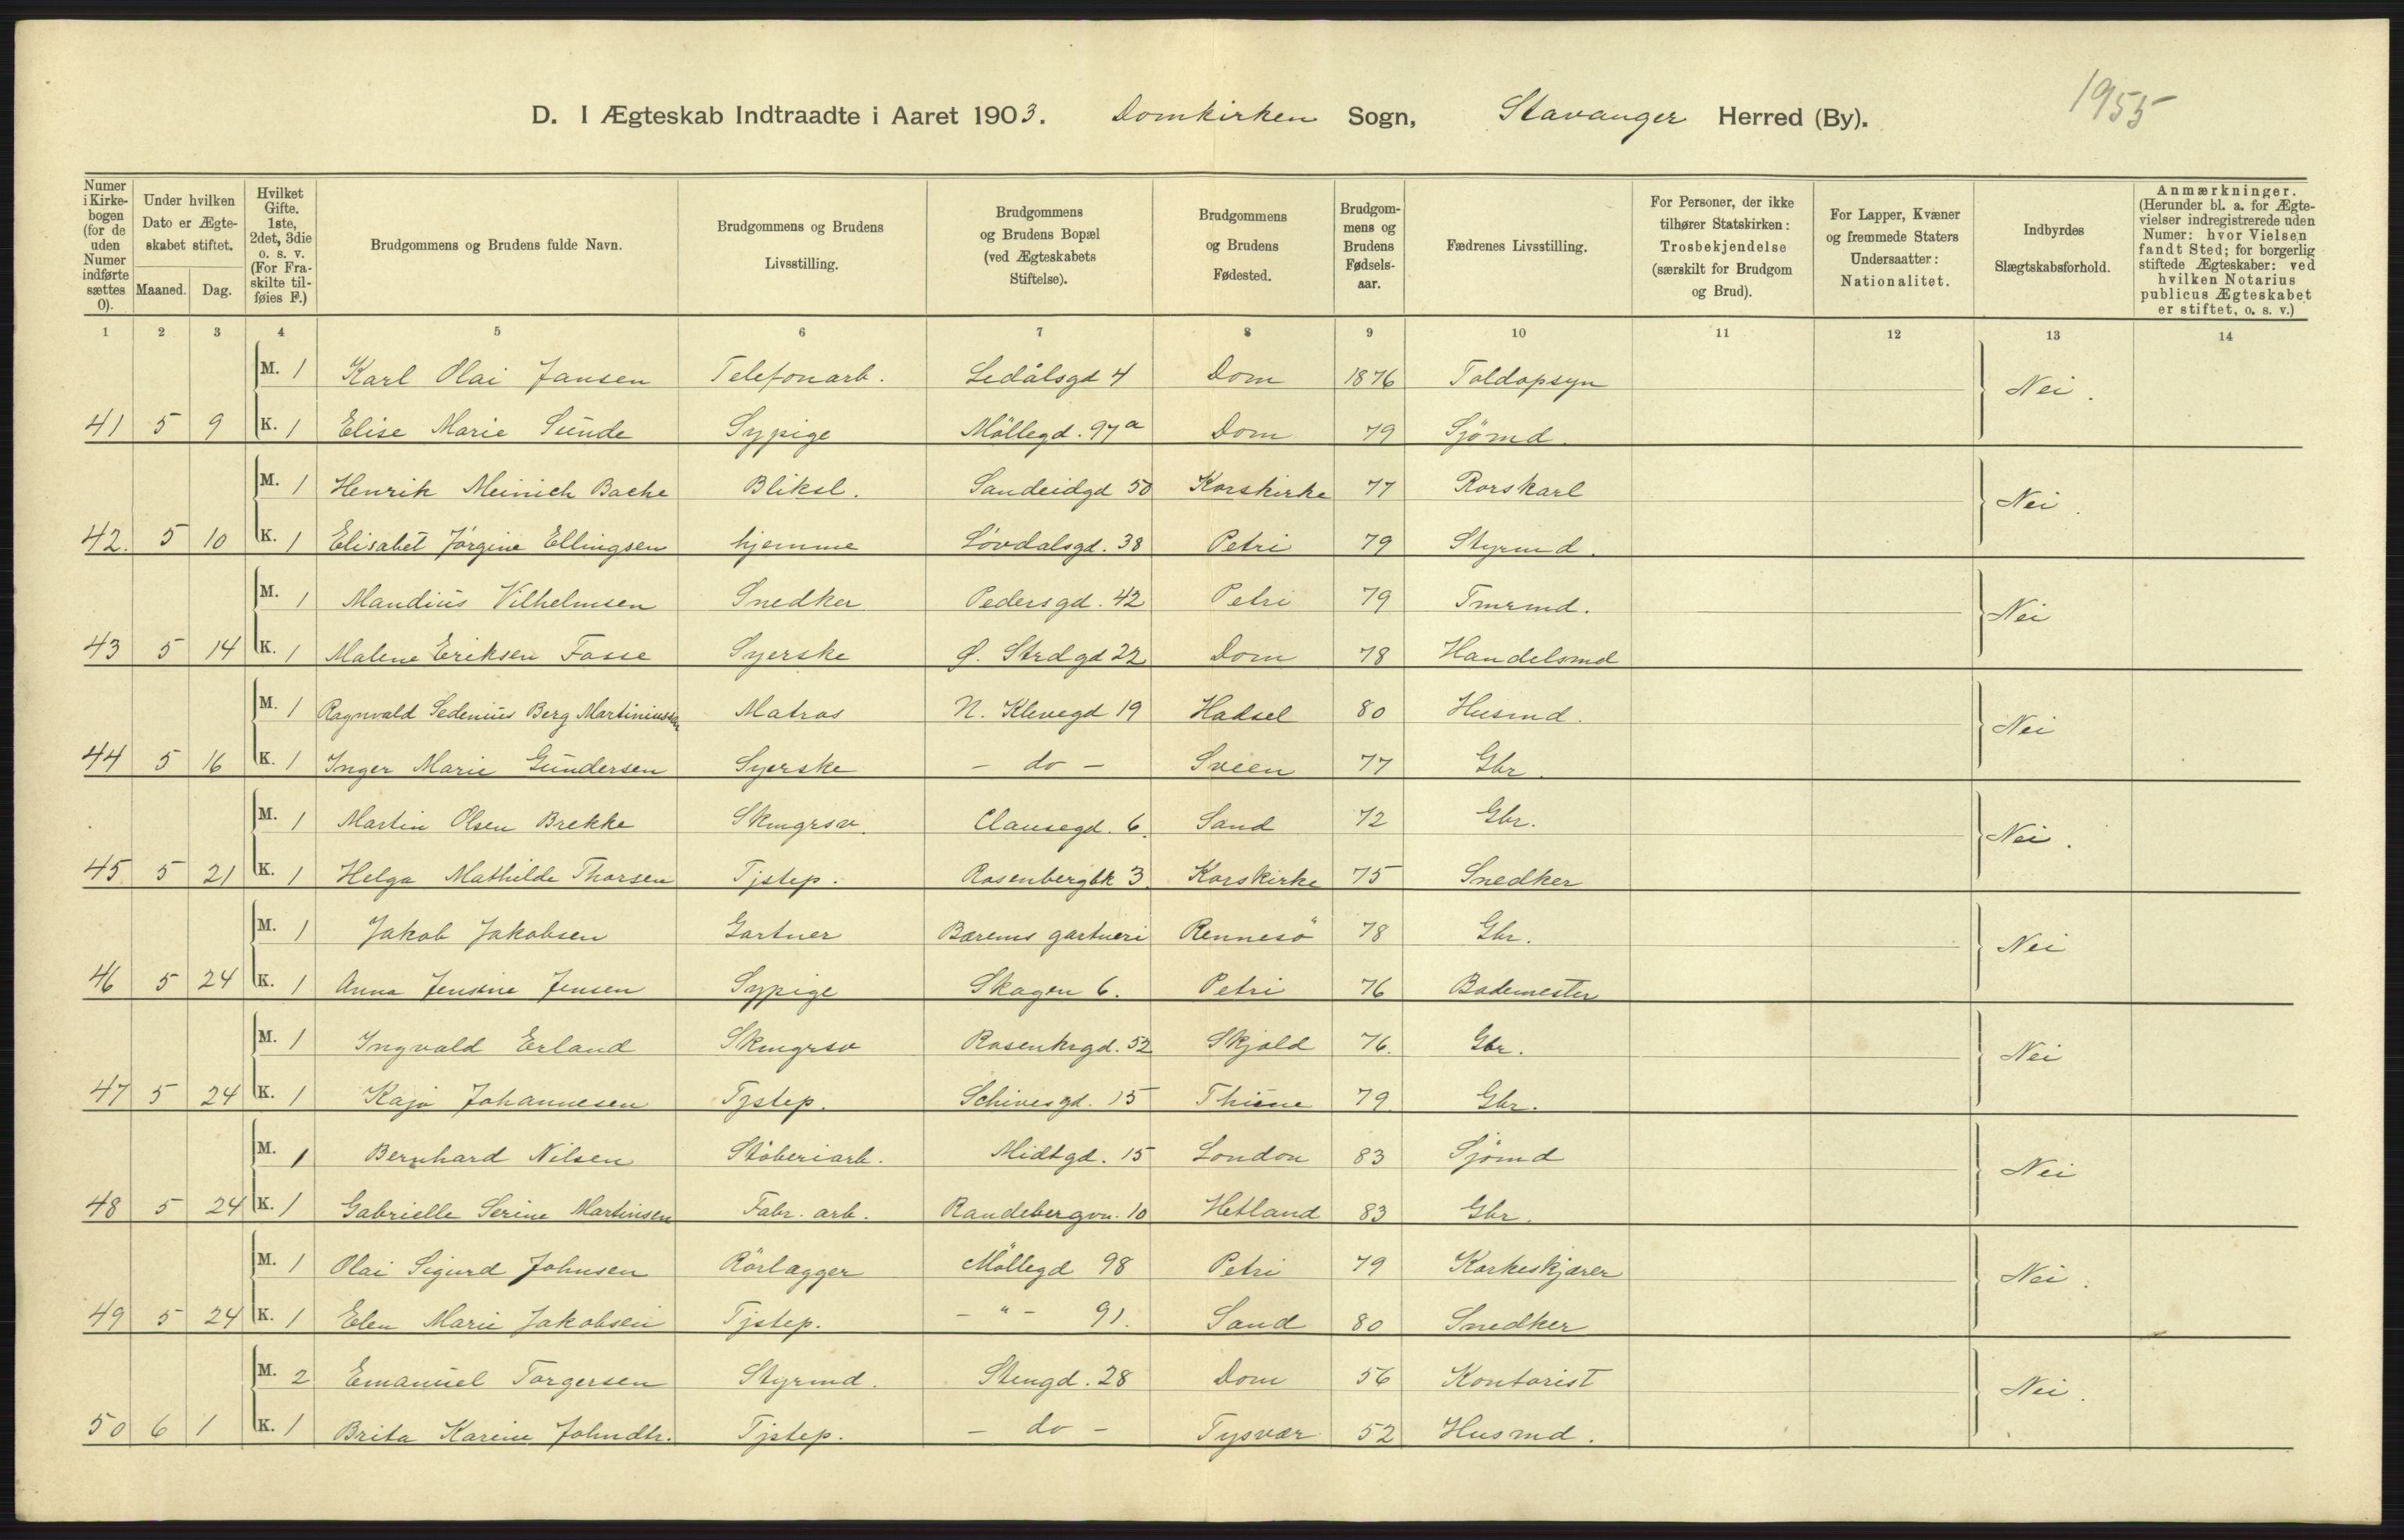 1955
D. I Ægteskab Indtraadte i Aaret 1903. Domkirken Sogn, Stavanger Herred (By).
Numer i Kirkebogen (for de uden Numer indførte sættes 0). Under hvilken Dato er Ægteskabet stiftet. Maaned. Dag. Hvilket Gifte. 1ste, 2det, 3die o. s. v. (For Fraskilte tilføies F.) Brudgommens og Brudens fulde Navn. Brudgommens og Brudens Livsstilling. Brudgommens og Brudens Bopæl (ved Ægteskabets Stiftelse). Brudgommens og Brudens Fødested. Brudgommens og Brudens Fødselsaar. Fædrenes Livsstilling. For Personer, der ikke tilhører Statskirken: Trosbekjendelse (særskilt for Brudgom og Brud). For Lapper, Kvæner og fremmede Staters Undersaatter: Nationalitet. Indbyrdes Slægtskabsforhold. Anmærkninger. (Herunder bl. a. for Ægtevielser indregistrerede uden Numer: hvor Vielsen fandt Sted; for borgerlig stiftede Ægteskaber: ved hvilken Notarius publicus Ægteskabet er stiftet, o. s. v.)
1 2 3 4 5 6 7 8 9 10 11 12 13 14
M. 1 Karl Olai Jansen Telefonarb. Ledålsgd 4 Dom 1876 Toldopsyn Nei.
41 5 9 K. 1 Elise Marie Sunde Sypige Möllegd. 97a Dom 79 Sjömd.
M. 1 Henrik Meinich Bache Bliksl. Sandeidgd 50 Korskirke 77 Rorskarl Nei.
42. 5 10 K. 1 Elisabet Jørgine Ellingsen hjemme Løvdalsgd. 38 Petri 79 Styrmd.
M. 1 Mandius Vilhelmsen Snedker Pedersgd. 42 Petri 79 Tmrmd. Nei
43 5 14 K. 1 Malene Eriksen Fosse Syerske Ø. Strdgd 22 Dom 78 Handelsmd
M. 1 Ragnvald Sedenius Berg Martiniussen Matros N. Klevegd 19 Hadsel 80 Husmd. Nei
44 5 16 K. 1 Inger Marie Gundersen Syerske - do - Sveen 77 Gbr.
M. 1 Martin Olsen Brekke Skmgrsv. Clausegd. 6. Sand 72 Gbr. Nei.
45 5 21 K. 1 Helga Mathilde Thorsen Tjstep. Rosenbergbk 3. Korskirke 75 Snedker
M. 1 Jakob Jakobsen Gartner Bærems gartneri Rennesö 78 Gbr. Nei
46 5 24 K. 1 Anna Jensine Jensen Sypige Skagen 6. Petri 76 Bademester
M. 1 Ingvald Erland Skmgrsv Rosenkrgd. 52 Skjold 76. Gbr. Nei
47 5 24 K. 1 Kaja Johannesen Tjstep. Schivesgd. 15 Thime 79. Gbr.
M. 1 Bernhard Nilsen Stöberiarb. Midtgd. 15 London 83 Sjömd Nei
48 5 24 K. 1 Gabrielle Serine Martinsen Fabr. arb. Randebergvn. 10 Hetland 83 Gbr.
M. 1 Olai Sigurd Johnsen Rörlægger Möllegd 98 Petri 79 Korkeskjærer Nei.
49 5 24 K. 1 Elen Marie Jakobsen Tjstep. - " - 91. Sand 80 Snedker
M. 2 Emanuel Torgersen Styrmd. Stengd. 28 Dom 56 Kontorist Nei.
50 6 1 K. 1 Brita Karine Johndtr. Tjstep. - do - Tysvær 52 Husmd.